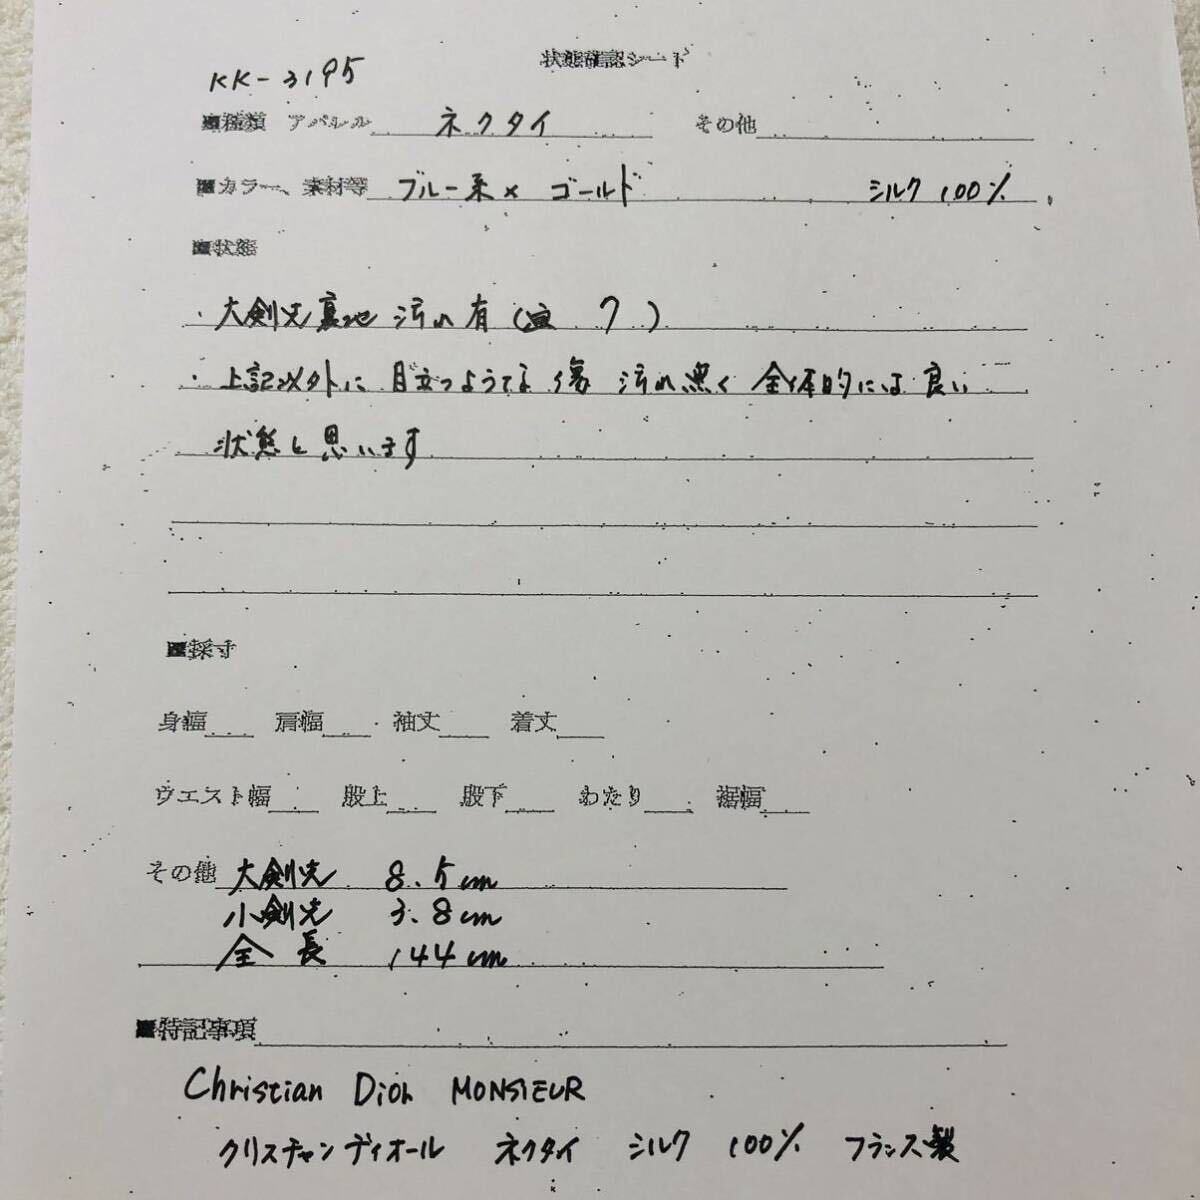 状態確認シート
KK-3195
■種類 アパレル ネクタイ その他
■カラー、素材等 ブルー系× ゴールド シルク 100%
■状態
・大剣先裏地 汚れ有(画 7)
・上記以外に目立つような傷 汚れ無く 全体的には良い
状態と思います
■採寸
身幅 肩幅 袖丈 着丈
ウエスト幅 股上 股下 わたり 裾幅
その他 大剣先 8.5cm
小剣先 3.8cm
全長 144cm
■特記事項
Christian Dior MONSIEUR
クリスチャンディオール ネクタイ シルク 100% フランス製